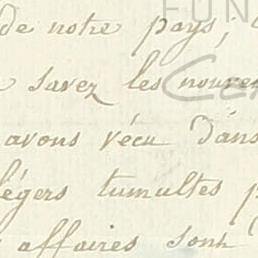 FUN
de notre pays,
savez les nouve
avons vécu dans
légers tumultes p
affaires sont